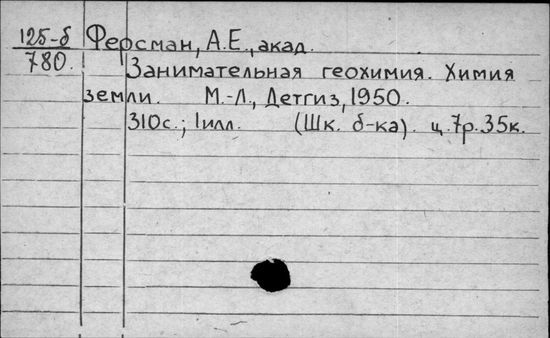 125-б Ферсман, А.Е., акад.
780. Занимательная геохимия. Химия
земли. М.-Л., Детгиз, 1950.
310с.; 1илл. (Шк. б-ка). ц.7р.35к.